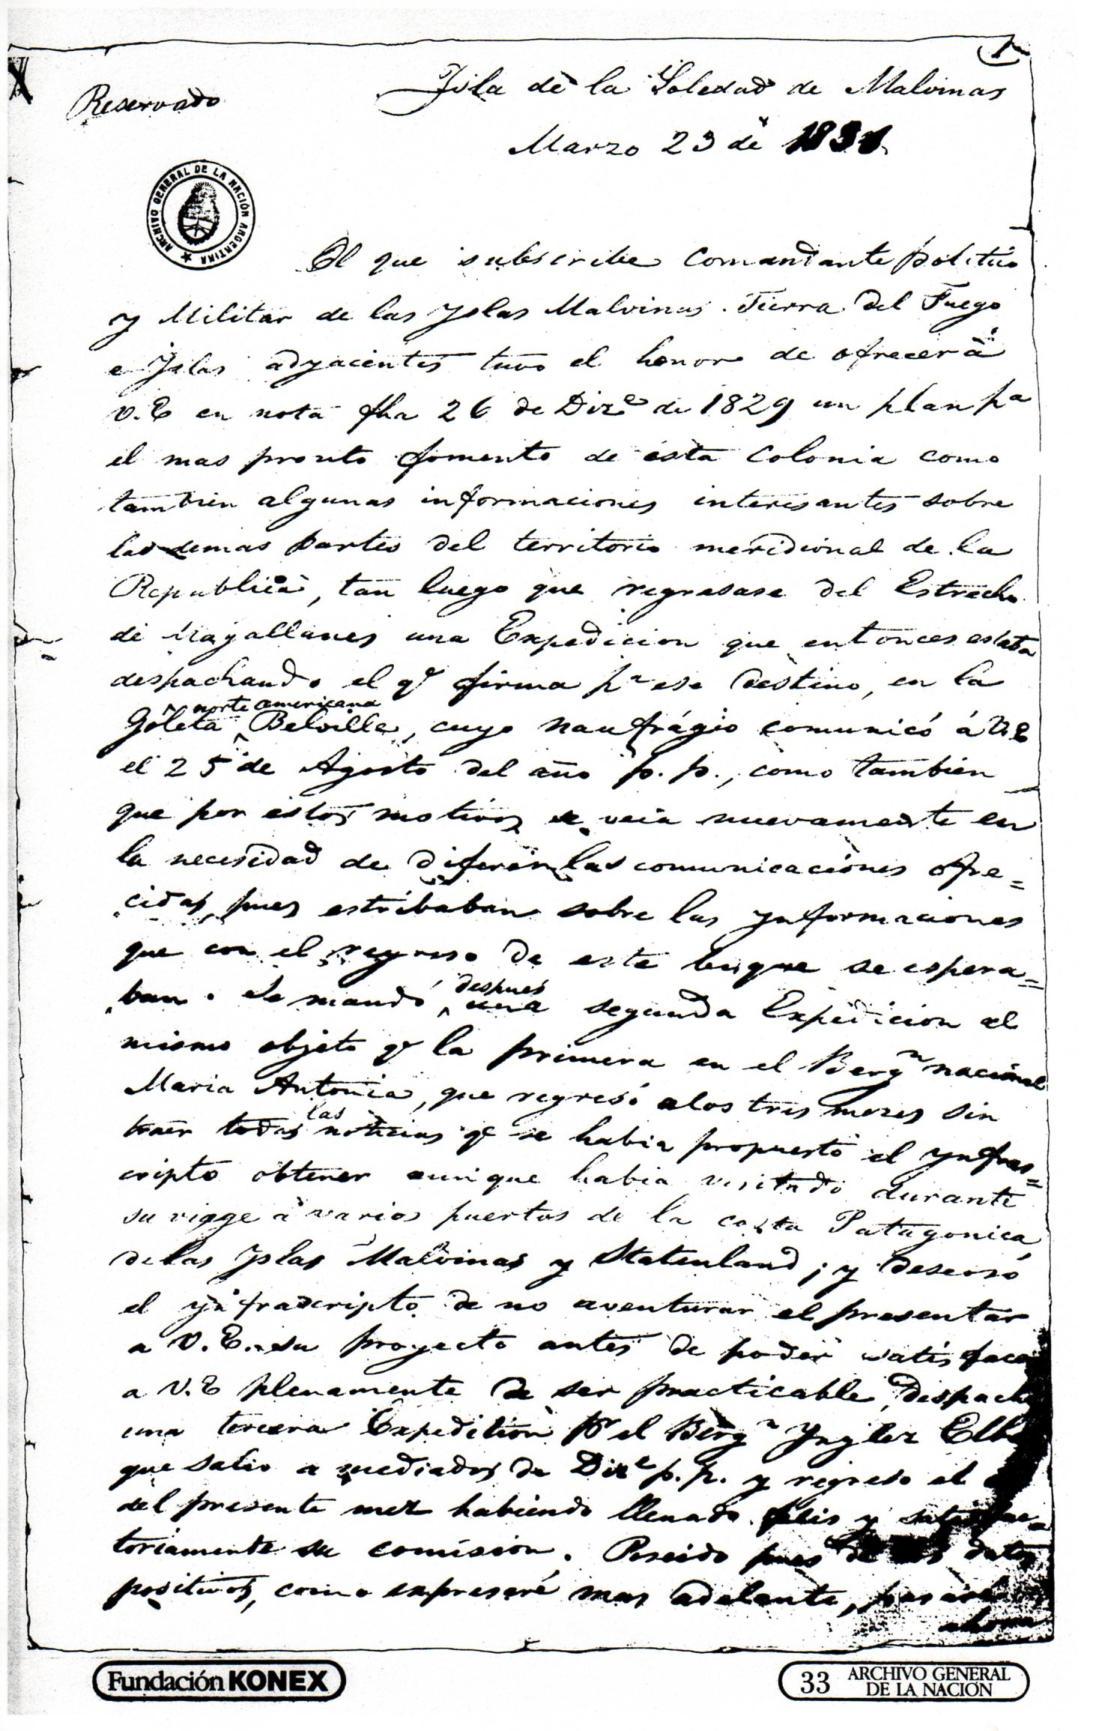 1
Reservado
Isla de la Soledad de Malvinas
Marzo 23 de 1831.
ARCHIVO GENERAL DE LA NACIÓN ARGENTINA
El que subscribe Comandante Politico
y Militar de las Yslas Malvinas. Tierra del Fuego
e Yslas adyacentes tuvo el honor de ofrecer á
V.E en nota fha 26 de Dize de 1829 un plan pa
el mas pronto fomento de ésta Colonia como
tambien algunas informaciones interesantes sobre
las demas partes del territorio meridional de la
Republica, tan luego que regresase del Estrecho
de Magallanes una Expedicion que entonces estaba
despachando el qe firma pa ese destino, en la
norte americana
Goleta Belville, cuyo naufrágio comunicó á V.E
el 25 de Agosto del año p. p., como tambien
que por estos motivos se veia nuevamente en
la necesidad de diferir las comunicaciónes ofre=
cidas, pues estribaban sobre las ynformaciones
que con el regreso de este buque se espera=
despues
ban. Se mandó una segunda Expedicion al
mismo objeto qe la primera en el Bergn nacional
Maria Antonia, que regresó a los tres meses sin
las
traer todas noticias qe se habia propuesto el ynfras=
cripto obtener aunque habia visitado durante
su viage á varios puertos de la costa Patagonica,
de las Yslas Malvinas y Statenland; y deseoso
el ynfrascripto de no aventurar el presentar
a V.E. su proyecto antes de poder satisfacer
a V.E plenamente de ser practicable, despachó
una tercera Expedition pr el Bergn Yngles Elbe
que salio a mediados de Dize p.p. y regreso el
del presente mez habiendo llenado feliz y satisfac=
toriamente su comision. Poseido pues de datos
positivos, como expresaré mas adelante, pasaré
ahora
Fundación KONEX
33 ARCHIVO GENERAL
DE LA NACIÓN